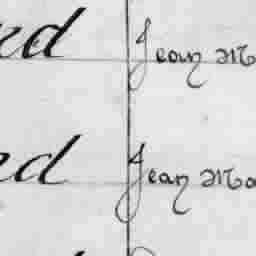 ed Jean Ma
ed Jean Ma